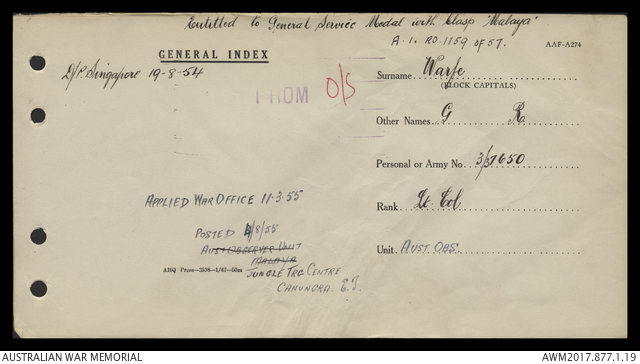 Entitled to General Service Medal with Clasp 'Malaya'
A.I. RO 1159 of 57.
AAF-A274
GENERAL INDEX
D/P. Singapore 19-8-54
FROM O/S
Surname Warfe
(BLOCK CAPITALS)
Other Names G R
Personal or Army No. 3/37650
Rank Lt Col
APPLIED WAR OFFICE 11.3.55
POSTED 4/8/55
AUST OBSERVER UNIT
MALAYA
Unit. AUST. OBS.
AHQ Press—3598—1/47—50m
JUNGLE TRG CENTRE
CANUNGRA. E.I.
AUSTRALIAN WAR MEMORIAL
AWM2017.877.1.19